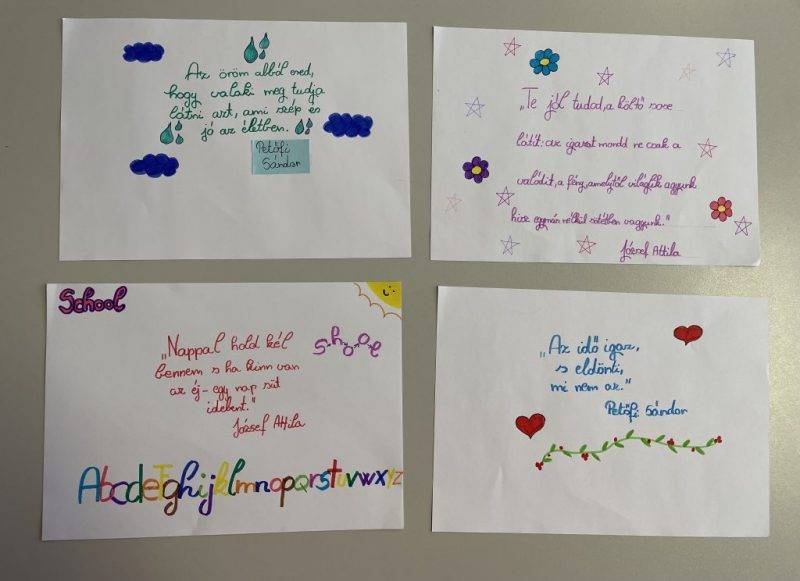 Az öröm abból ered,
hogy valaki meg tudja
látni azt, ami szép és
jó az életben.
Petőfi
Sándor
„Te jól tudod, a költő sose
lódít: az igazat mondd ne csak a
valódit, a fény, amelytől világlik agyunk
hisz egymás nélkül sötétben vagyunk."
József Attila
School
„Nappal hold kél
bennem s ha kinn van
az éj - egy nap süt
idebent."
József Attila
School
AbcdeFghijklmnopqrstuvwxyz
„Az idő igaz,
s eldönti,
mi nem az."
Petőfi Sándor